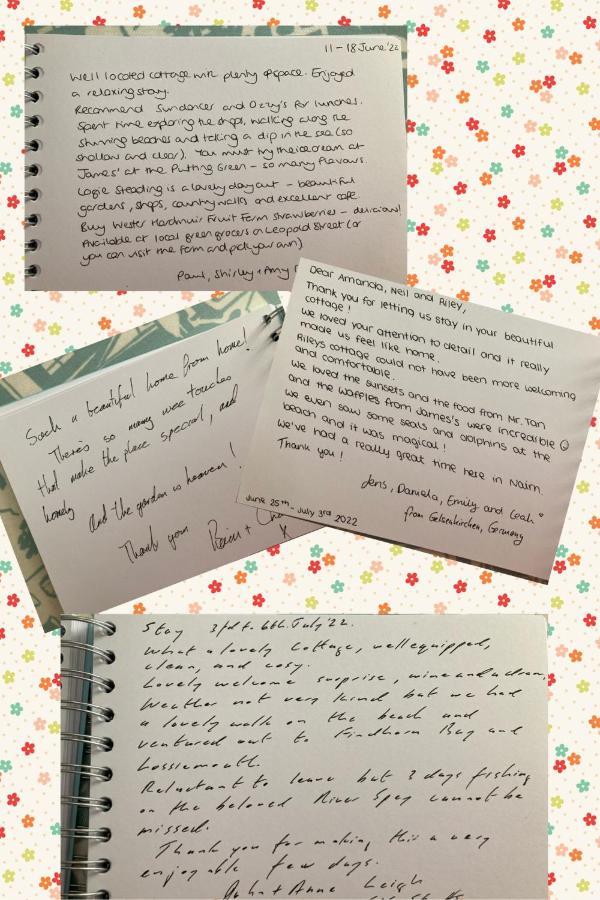 11 - 18 June '22
Well located cottage with plenty of space. Enjoyed
a relaxing stay.
Recommend Sundancer and Ozzy's for lunches.
Spent time exploring the shops, walking along the
stunning beaches and taking a dip in the sea (so
shallow and clear). You must try the icecream at
James' at the Putting Green - so many flavours.
Logie Steading is a lovely day out - beautiful
gardens, shops, country walks and excellent cafe
Buy Wester Hardmuir Fruit Farm Strawberries - delicious!
Available at local green grocers on Leopold Street (or
you can visit the farm and pick your own)
Paul, Shirley + Amy
Dear Amanda, Neil and Riley,
Thank you for letting us stay in your beautiful
cottage!
We loved your attention to detail and it really
made us feel like home.
Rileys cottage could not have been more welcoming
and comfortable.
We loved the sunsets and the food from Mr. Tan
and the waffles from James's were incredible ☺
We even saw some seals and dolphins at the
beach and it was magical!
We've had a really great time here in Nairn.
Thank you!
Jens, Daniela, Emily and Leah
from Gelsenkirchen, Germany
June 25th - July 3rd 2022
Such a beautiful home from home!
There's so many wee touches
that make the place special, and
homely
and the garden is heaven!
Thank you
x
Stay 3rd to 6th July '22.
What a lovely cottage, well equipped,
clean, and cosy.
Lovely welcome surprise, wine and a dram,
Weather not very kind but we had
a lovely walk on the beach and
ventured out to Findhorn Bay and
Lossiemouth.
Reluctant to leave but 3 days fishing
on the beloved River Spey cannot be
missed.
Thank you for making this a very
enjoyable few days.
John + Anne Leigh